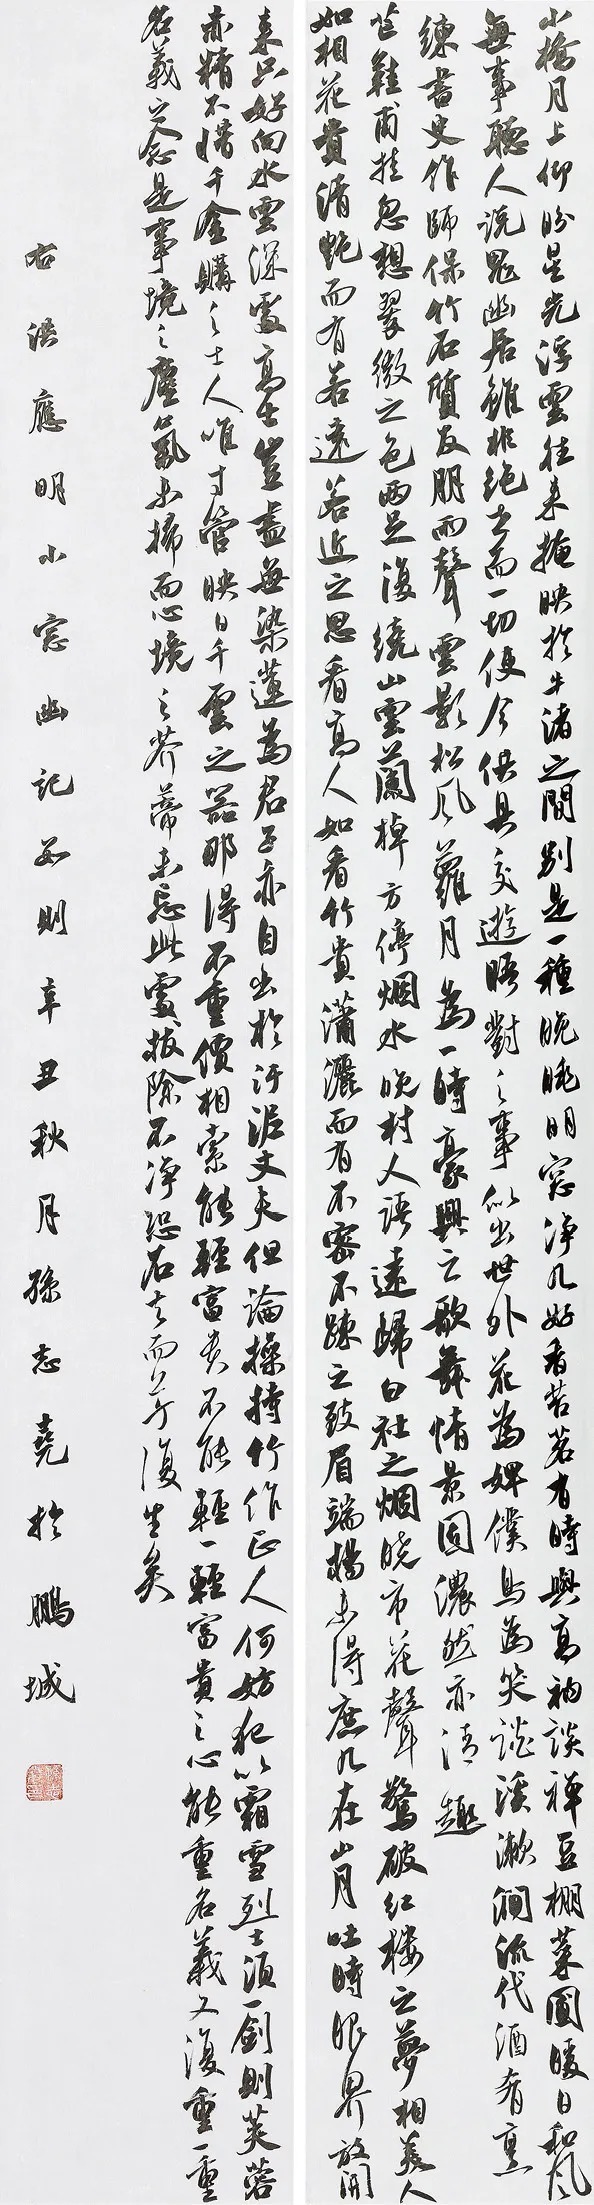 小橋月上仰盼星光浮雲往來掩映於牛渚之間別是一種晚眺明窓淨几好香苦茗有時與高衲談禪豆棚菜圃暖日和風
無事聽人說鬼幽居雖非絕世而一切使令供具交遊晤對之事似出世外花為婢僕鳥為笑談溪漱澗流代酒肴烹
練書史作師保竹石質友朋雨聲雲影松風蘿月為一時豪興之歌舞情景固濃然亦清趣
芒鞋甫挂忽想翠微之色兩足復繞山雲蘭棹方停烟水晚村人語遠歸白社之烟曉市花聲驚破紅樓之夢相美人
如相花貴清艷而有若遠若近之思看高人如看竹貴瀟灑而有不密不疎之致眉端揚未得庶几在山月吐時眼界放開
來只好向水雲深處高士豈盡無染蓮為君子亦自出於汙泥丈夫但論操持竹作正人何妨犯以霜雪烈士須一劍則芙蓉
赤精不惜千金購之士人唯寸管映日干雲之器那得不重價相索能輕富貴不能輕一輕富貴之心能重名義又復重一重
名義之念是事境之塵氛未掃而心境之芥蒂未忘此處拔除不淨恐石去而草復生矣
右洪應明小窓幽記數則辛丑秋月孫志堯於鵬城